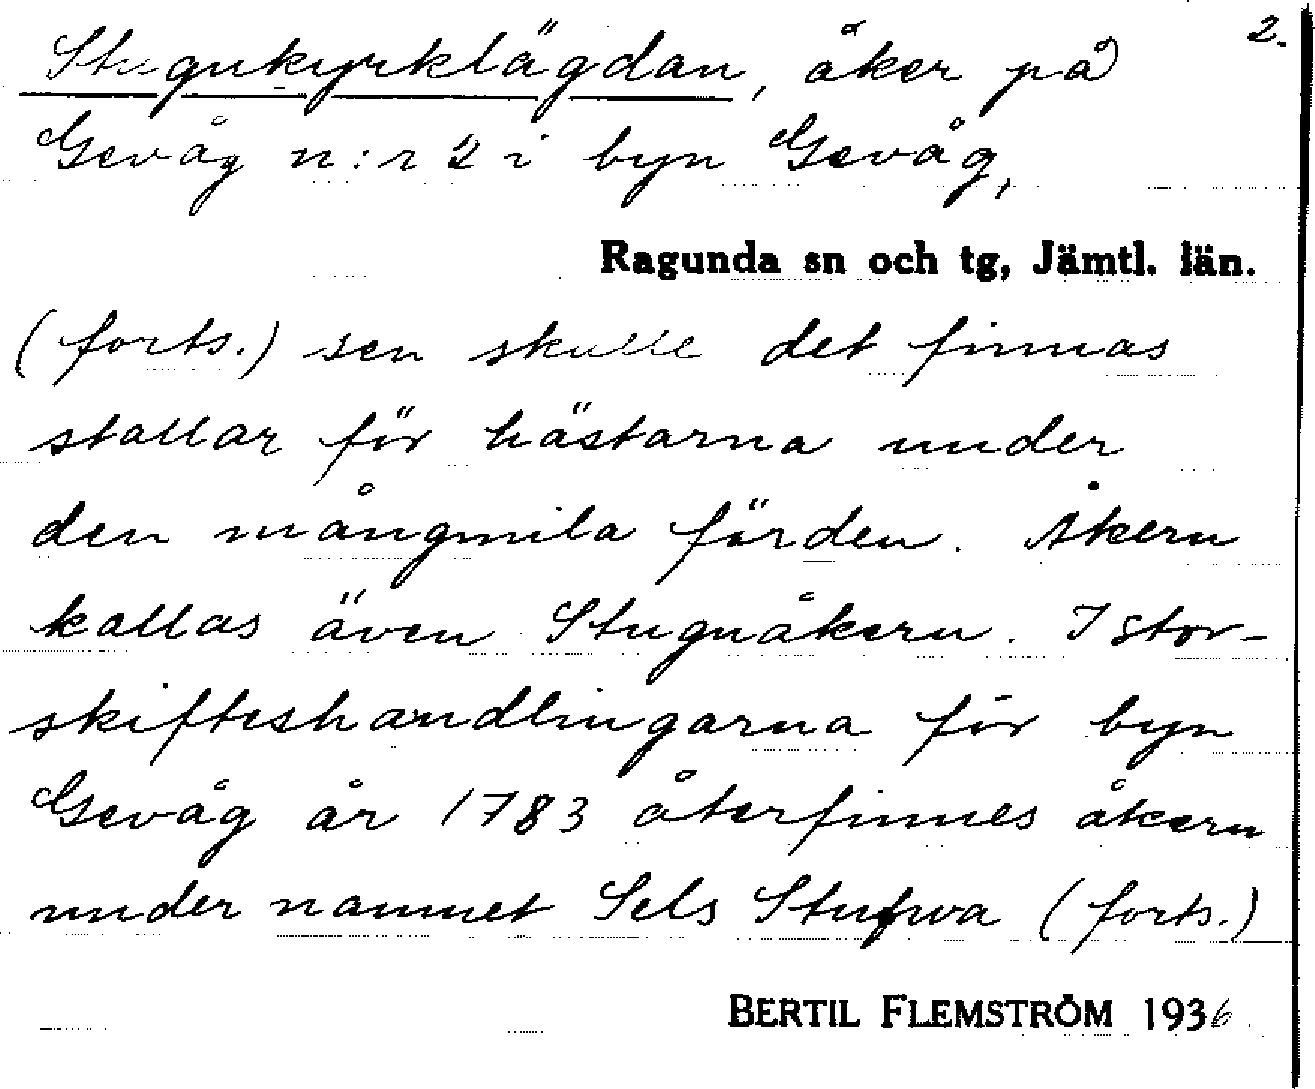 2.
Stugukyrklägdan, åker på
Gevåg n:r 2 i byn Gevåg,
Ragunda sn och tg, Jämtl. län.
(forts.) sen skulle det finnas
stallar för hästarna under
den mångmila färden. Åkern
kallas även Stuguåkern. I stor-
skifteshandlingarna för byn
Gevåg år 1783 återfinnes åkern
under namnet Sels Stufwa (forts.)
BERTIL FLEMSTRÖM 1936